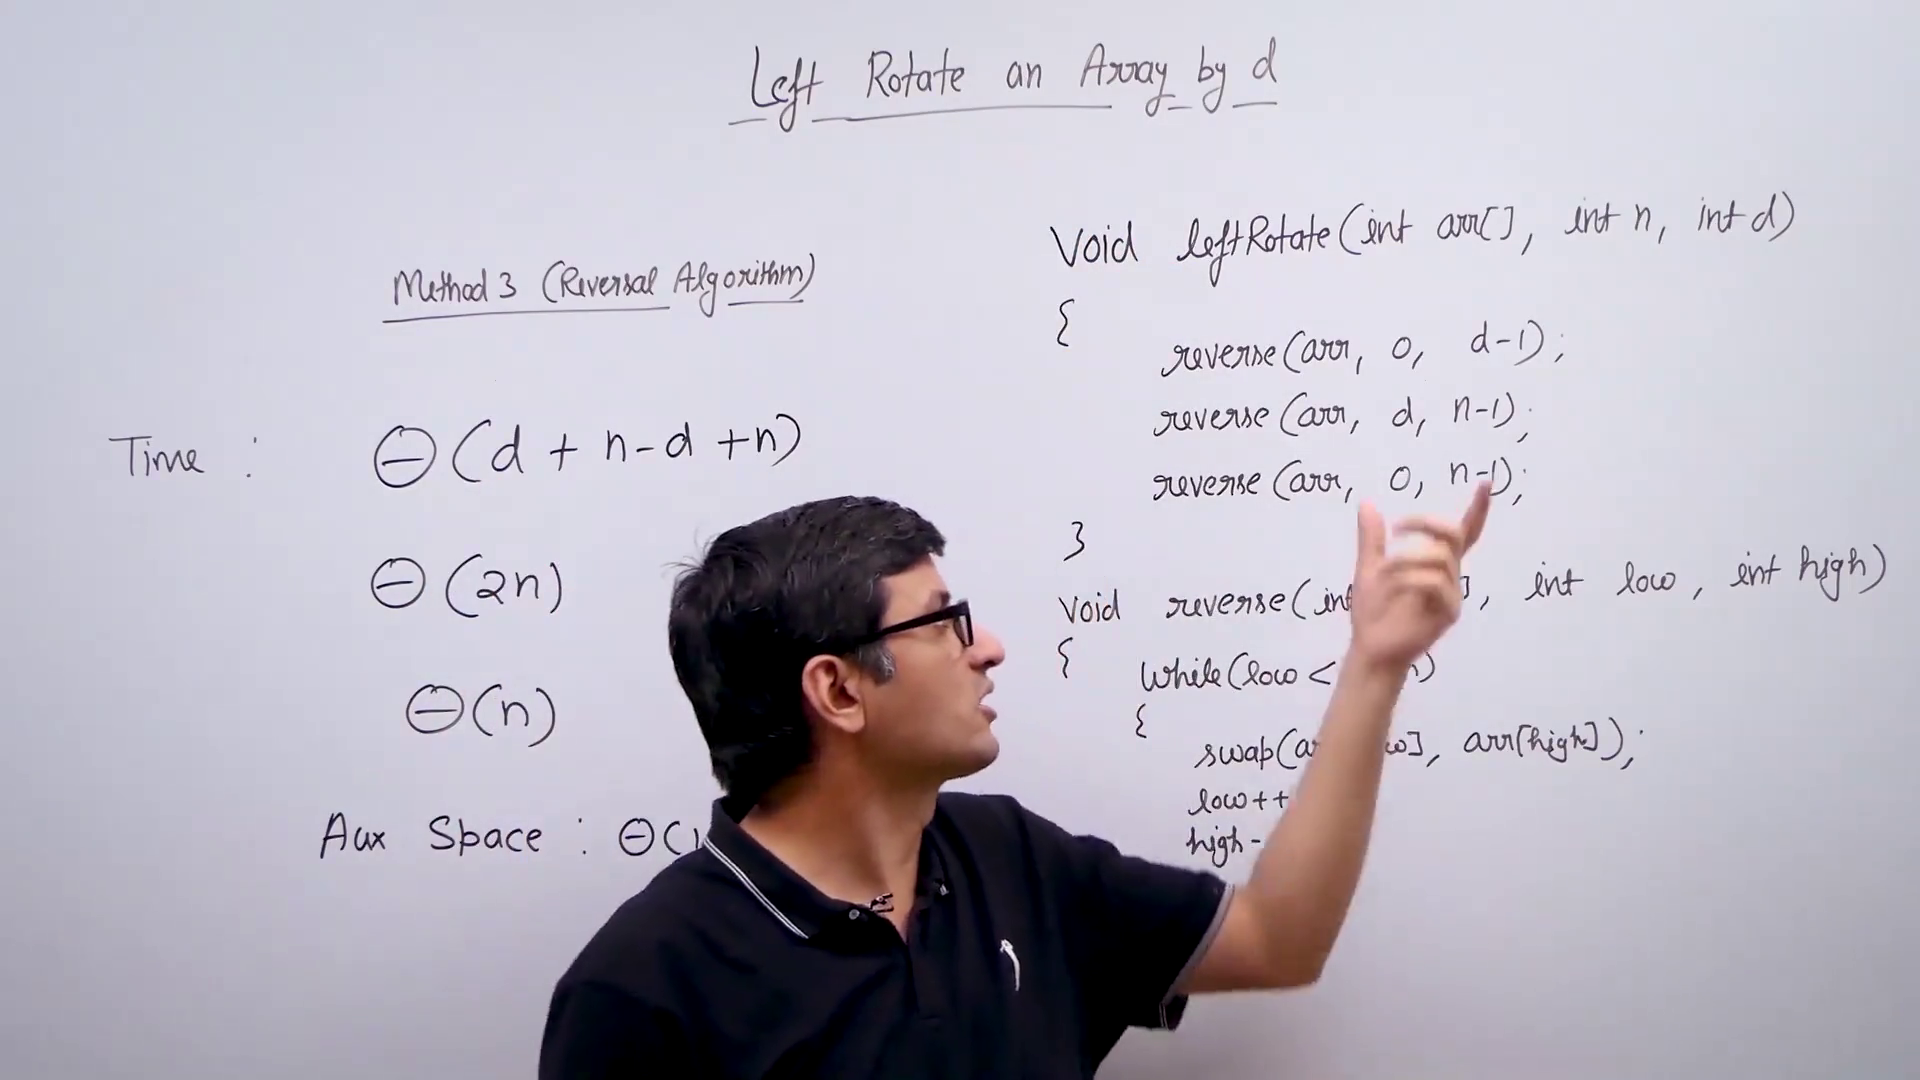 Left Rotate an Array by d
Method 3 (Reversal Algorithm)
Time :
Θ(d + n-d +n)
Θ(2n)
Θ(n)
Aux Space : Θ(1
Void leftRotate(int arr[], int n, int d)
{
reverse(arr, 0, d-1);
reverse(arr, d, n-1);
reverse(arr, 0, n-1);
}
void reverse(int ], int low, int high)
{
while(low < )
{
swap(a ], arr[high]);
low++
high-